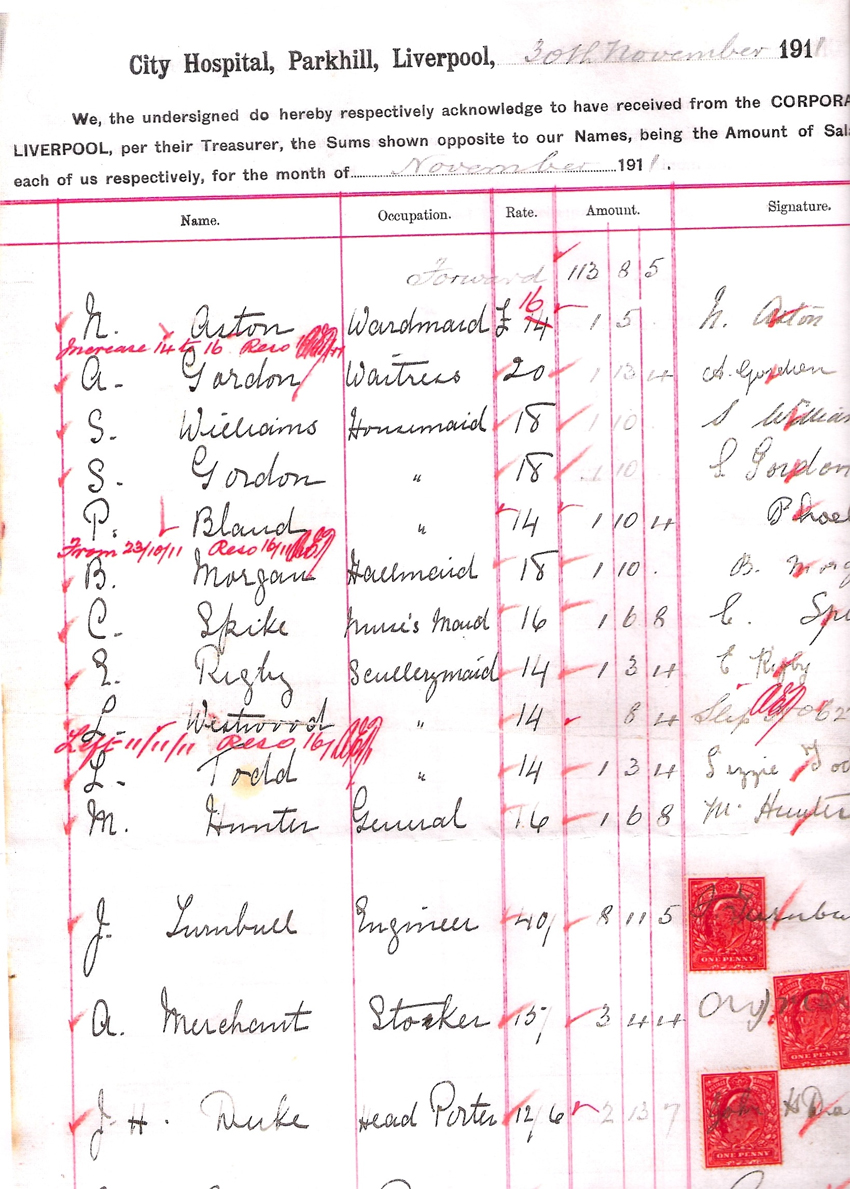 City Hospital, Parkhill, Liverpool, 30th November 1911
We, the undersigned do hereby respectively acknowledge to have received from the CORPORA
LIVERPOOL, per their Treasurer, the Sums shown opposite to our Names, being the Amount of Sal
each of us respectively, for the month of November 1911.
Name. Occupation. Rate. Amount. Signature.
Forward 113 8 5
N. Aston Wardmaid £ 14 16 1 5 N. Aston
Increase 14 to 16 Reso
A. Gordon Waitress 20 1 13 4 A. Gordon
S. Williams Housemaid 18 1 10 S William
S. Gordon " 18 1 10 S Gordon
P. Bland " 14 1 10 4 P
From 23/10/11 Reso 16/11
B. Morgan Hallmaid 18 1 10 . B. Morg
C. Spike Nurse's Maid 16 1 6 8 C. Spi
E. Rigby Scullerymaid 14 1 3 4 E Rigby
L. Westwood " 14 8 4 Slip
Left 11/11/11 Reso 16/
L. Todd " 14 1 3 4 Lizzie Tod
M. Hunter General 16 1 6 8 M. Hunter
J. Turnbull Engineer 40/ 8 11 5 J. Turnbu
ONE PENNY
A. Merchant Stoker 15/ 3 4 4
ONE PENNY
J. H. Duke Head Porter 12/6 2 13 7 John H Du
ONE PENNY